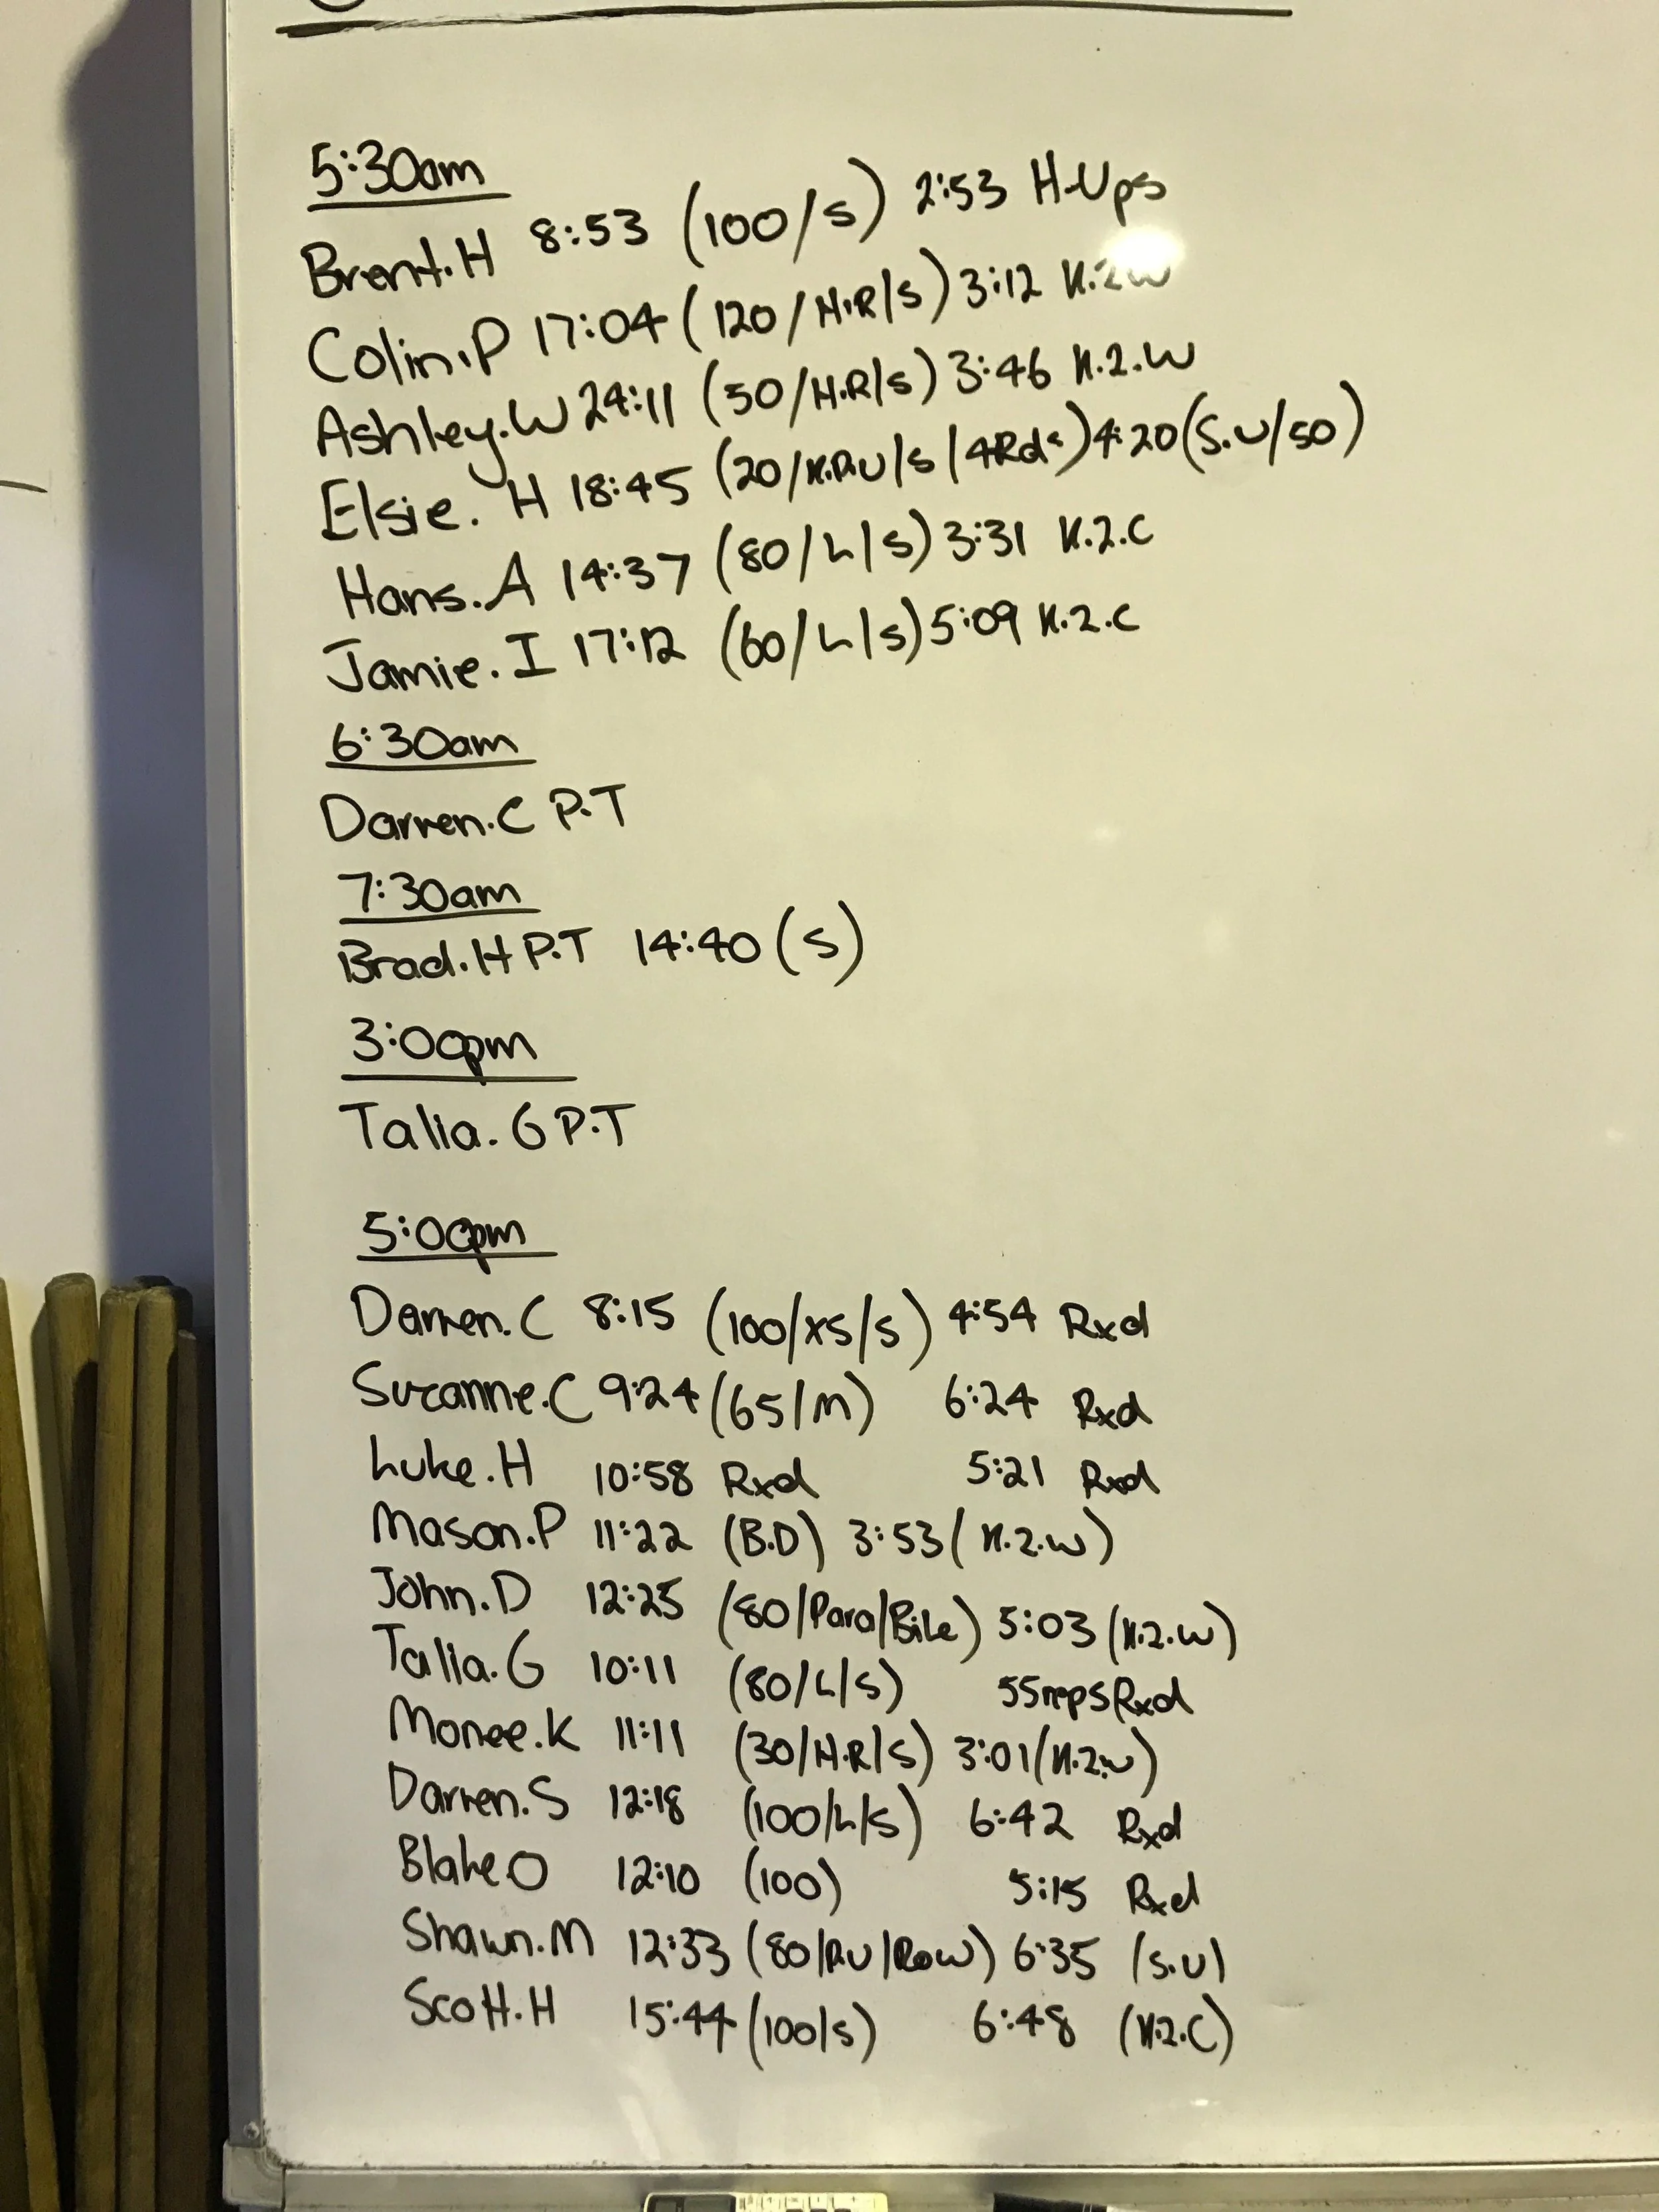 5:30am
Brent.H 8:53 (100/S) 2:53 H-Ups
Colin.P 17:04 (120/H.R/S) 3:12 K.2.W
Ashley.W 24:11 (50/H.R/S) 3:46 K.2.W
Elsie.H 18:45 (20/K.P.U/S/4Rds) 4:20 (S.U/50)
Hans.A 14:37 (80/L/S) 3:31 K.2.C
Jamie.I 17:12 (60/L/S) 5:09 K.2.C
6:30am
Darren.C P.T
7:30am
Brad.H P.T 14:40 (S)
3:00pm
Talia.G P.T
5:00pm
Darren.C 8:15 (100/XS/S) 4:54 Rxd
Suzanne.C 9:24 (65/M) 6:24 Rxd
Luke.H 10:58 Rxd 5:21 Rxd
Mason.P 11:22 (B.D) 3:53 (K.2.W)
John.D 12:25 (80/Para/Bike) 5:03 (K.2.W)
Talia.G 10:11 (80/L/S) 55reps Rxd
Monee.K 11:11 (30/H.R/S) 3:01 (K.2.W)
Darren.S 12:18 (100/L/S) 6:42 Rxd
Blake O 12:10 (100) 5:15 Rxd
Shawn.M 12:33 (80/P.U/Row) 6:35 (S.U)
Scott.H 15:44 (100/S) 6:48 (K.2.C)